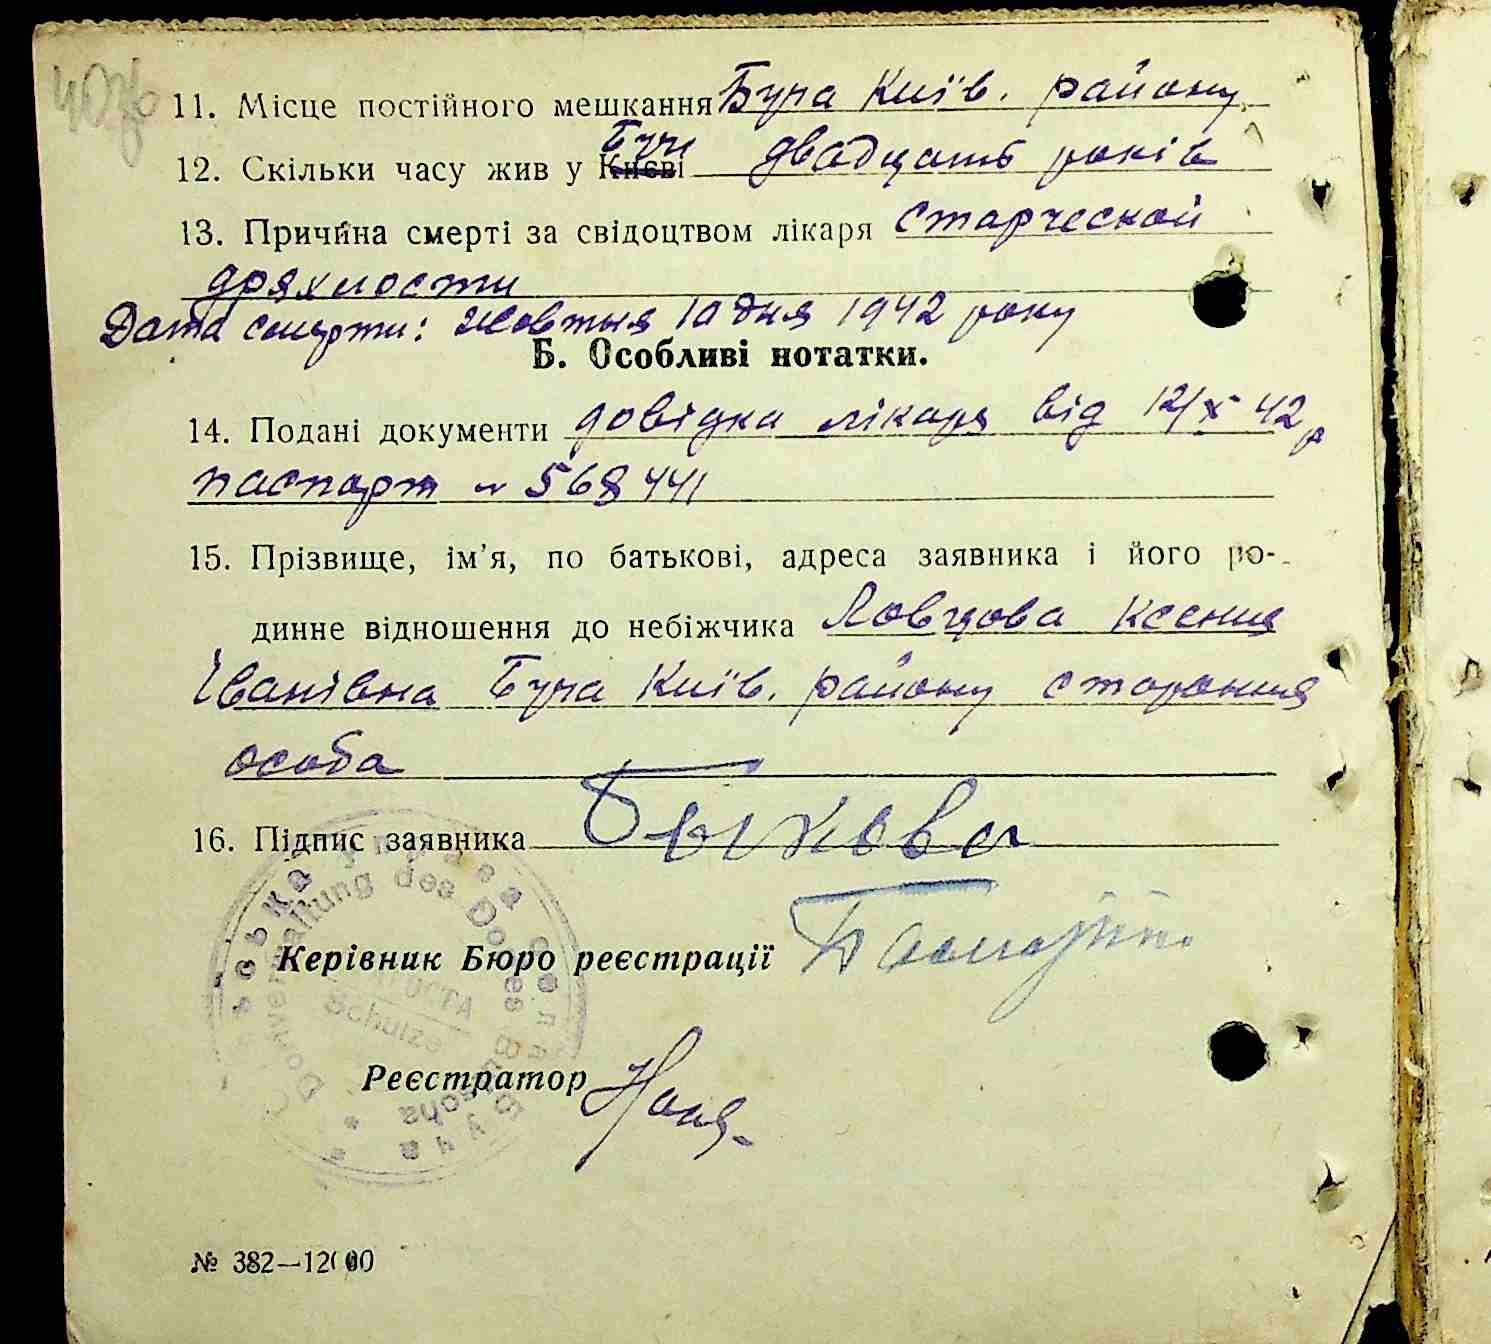 11. Місце постійного мешкання Буча Київ. району
12. Скільки часу жив у Києві Бучі двадцать років
13. Причина смерті за свідоцтвом лікаря старческой
дряхлости
Дата смерти: Жовтня 10 дня 1942 року
Б. Особливі нотатки.
14. Подані документи довідка лікаря від 12/X 42 р
паспорт № 568441
15. Прізвище, ім'я, по батькові, адреса заявника і його ро-
динне відношення до небіжчика Ловцова Ксения
Іванівна Буча Київ. району стороння
особа
16. Підпис заявника
Керівник Бюро реєстрації
Реєстратор
Dorfverwaltung des Dorfes Butscha
СТАРОСТА
Schulze
Буча
№ 382—12000